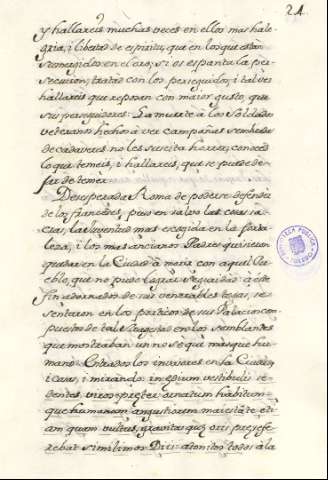 24
y hallareis muchas veces en ellos mas hale-
gria, i libertad de espiritu, que en los que estan
sumergidos en el oro; si os espanta la per-
secucion, tratad con los perseguidos, i tal vez
hallareis que reposan con maior gusto, que
sus perseguidores. La muerte à los Soldados
veteranos hechos à ver campañas sembradas
de cadaveres no les suscita horror, conoced
lo que temeis, i hallareis, que se puede de-
jar de temer.
Desesperada Roma de poderse defender
de los franceses, puso en salvo las cosas sa-
cras, la Juventud mas escogida en la forta-
leza, i los mas ancianos Padres quisieron
quedar en la Ciudad à morir con aquel Pue-
blo, que no pudo lograr seguridad: à este
fin adornados de sus venerables togas, se
sentaron en los porticos de sus Palacios com-
puestos de tal magestad en los semblantes
que mostraban un no sé qué mas que hu-
mano. Entrados los invasores en la Ciudad,
i casas, i mirando in ædium vestibulis se-
dentes viros, præter ornatum habitum-
que humano augustiorem, maiestate eti-
am quam vultus, gravitas que oris præsefe-
rebat simillimos Diis, atonitos todos à la
BIBLIOTECA PUBLICA
TOLEDO